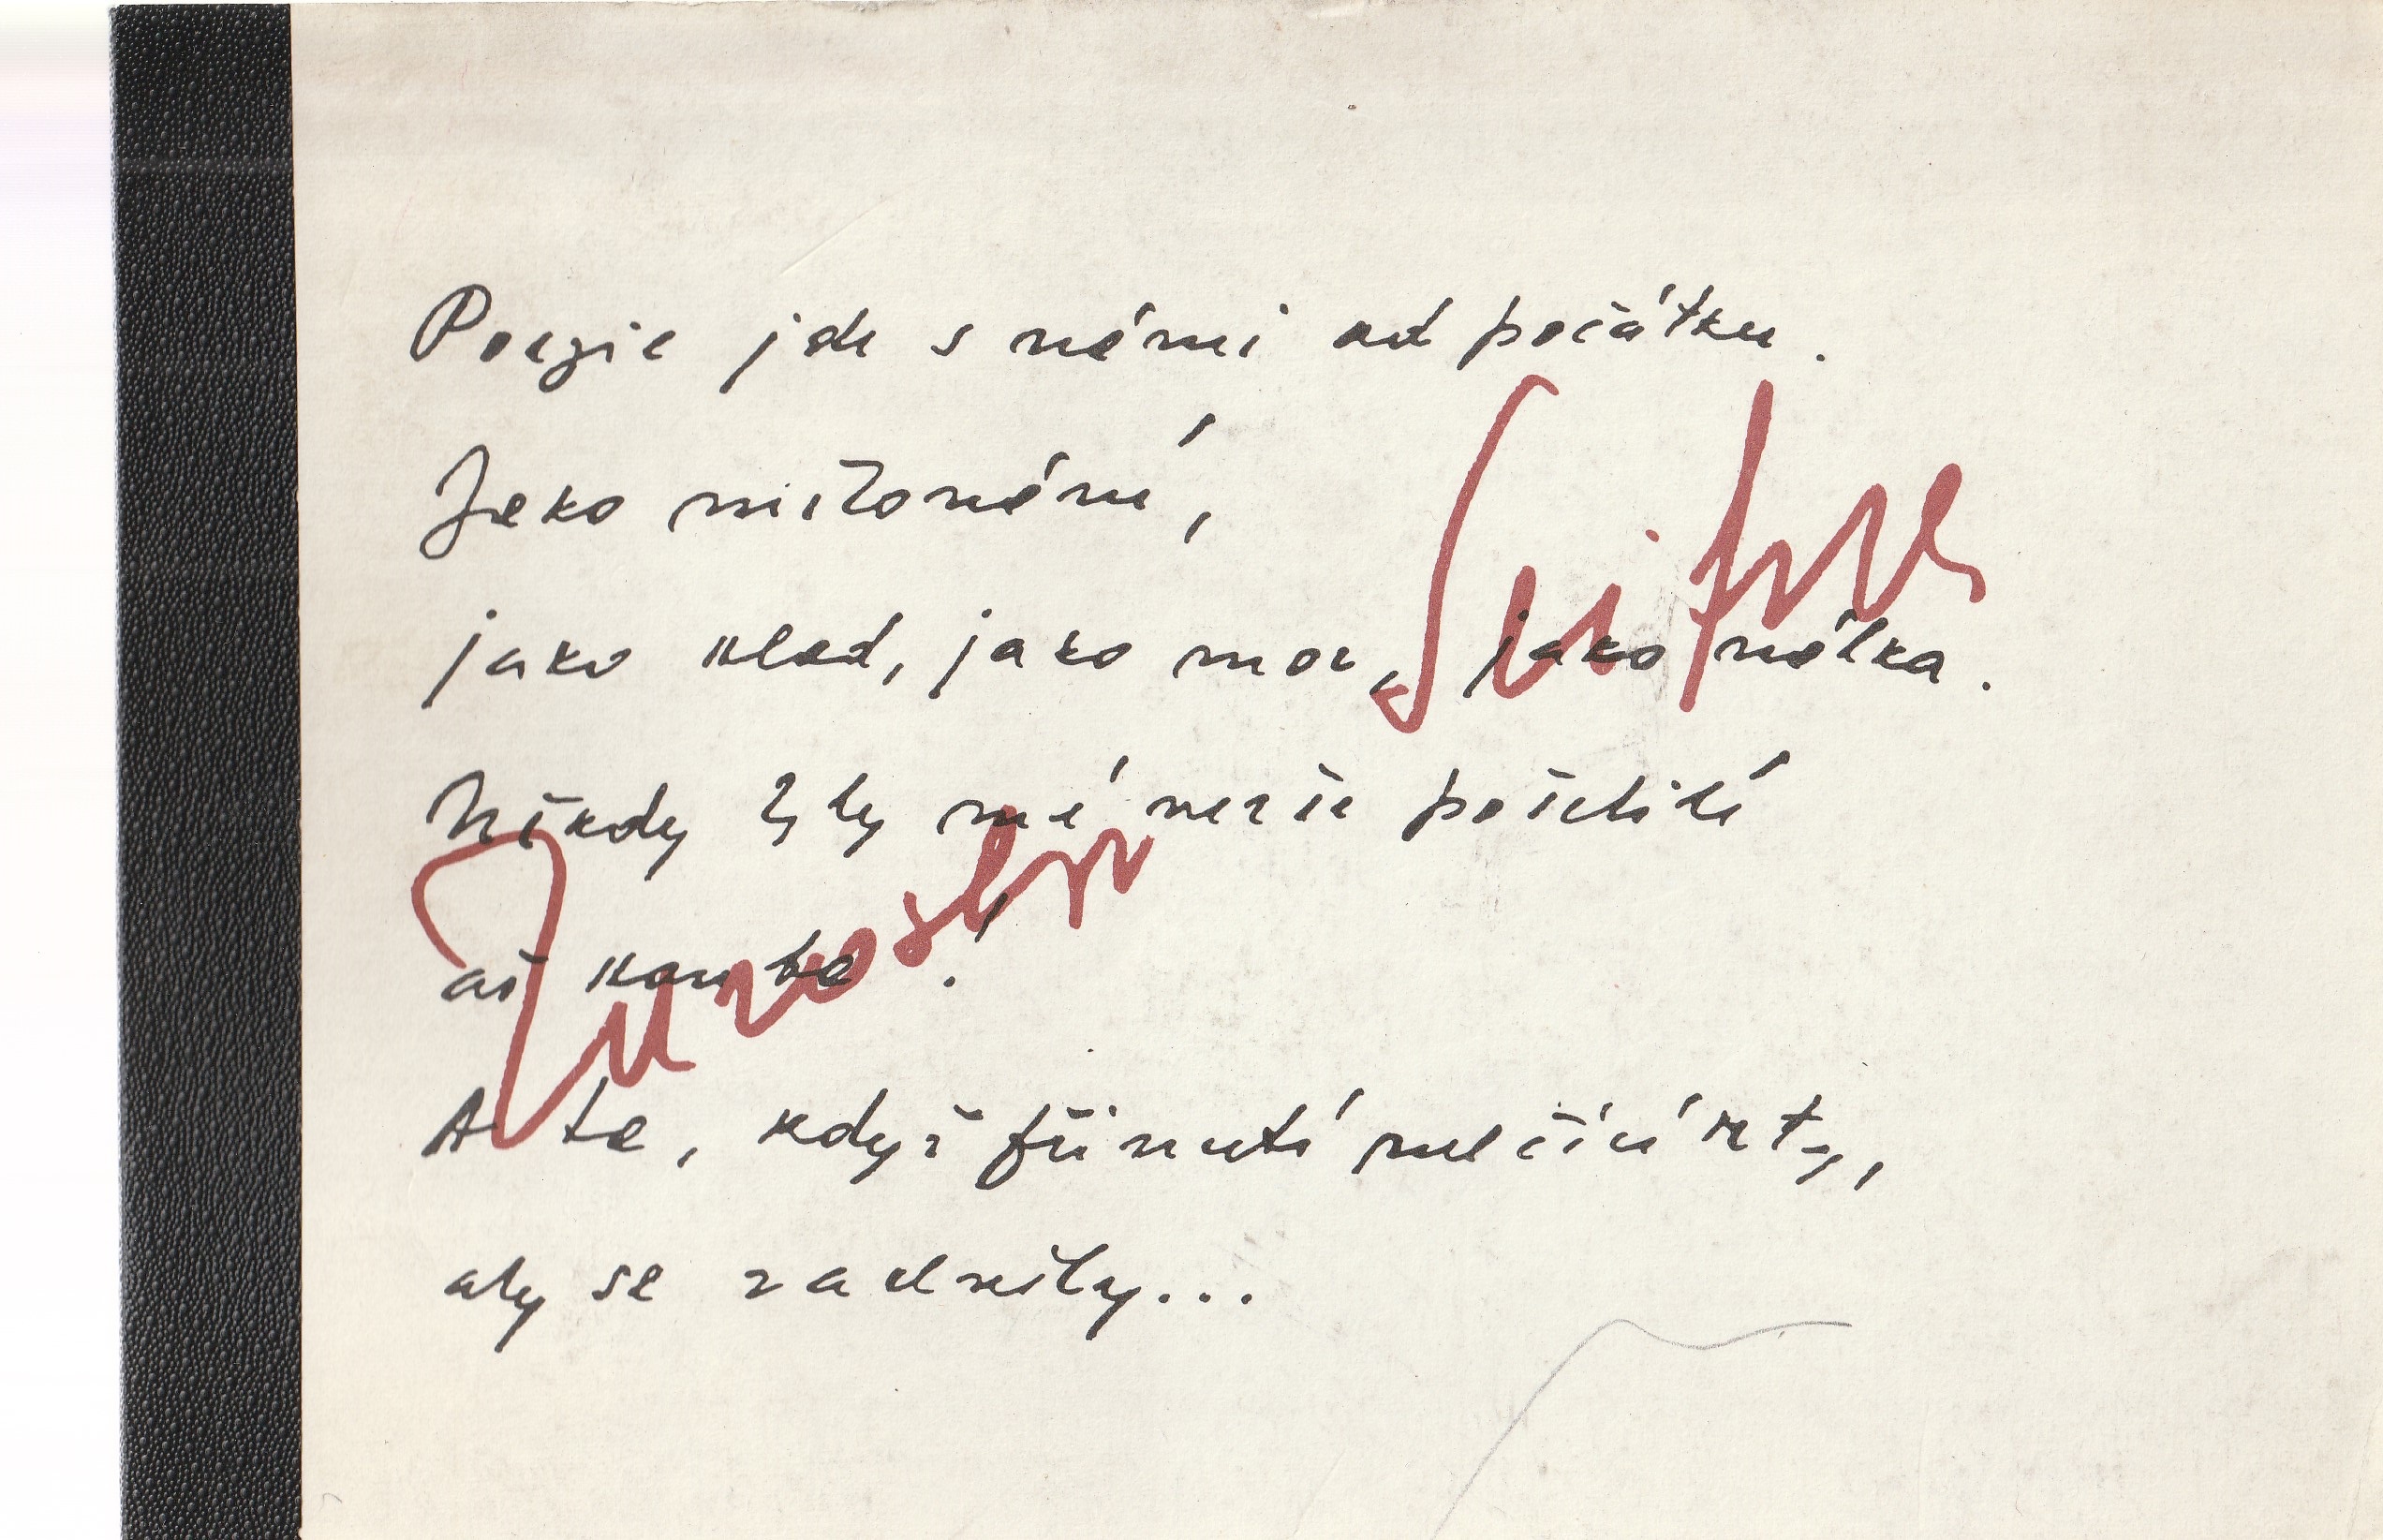 Poezie jde s námi od počátku.
Jako milování,
jako hlad, jako mor, jako válka.
Někdy byly mé verše pošetilé
až hanba.
A te, když přinutí mlčící rty,
aby se zachvěly...
Jaroslav
Seifert